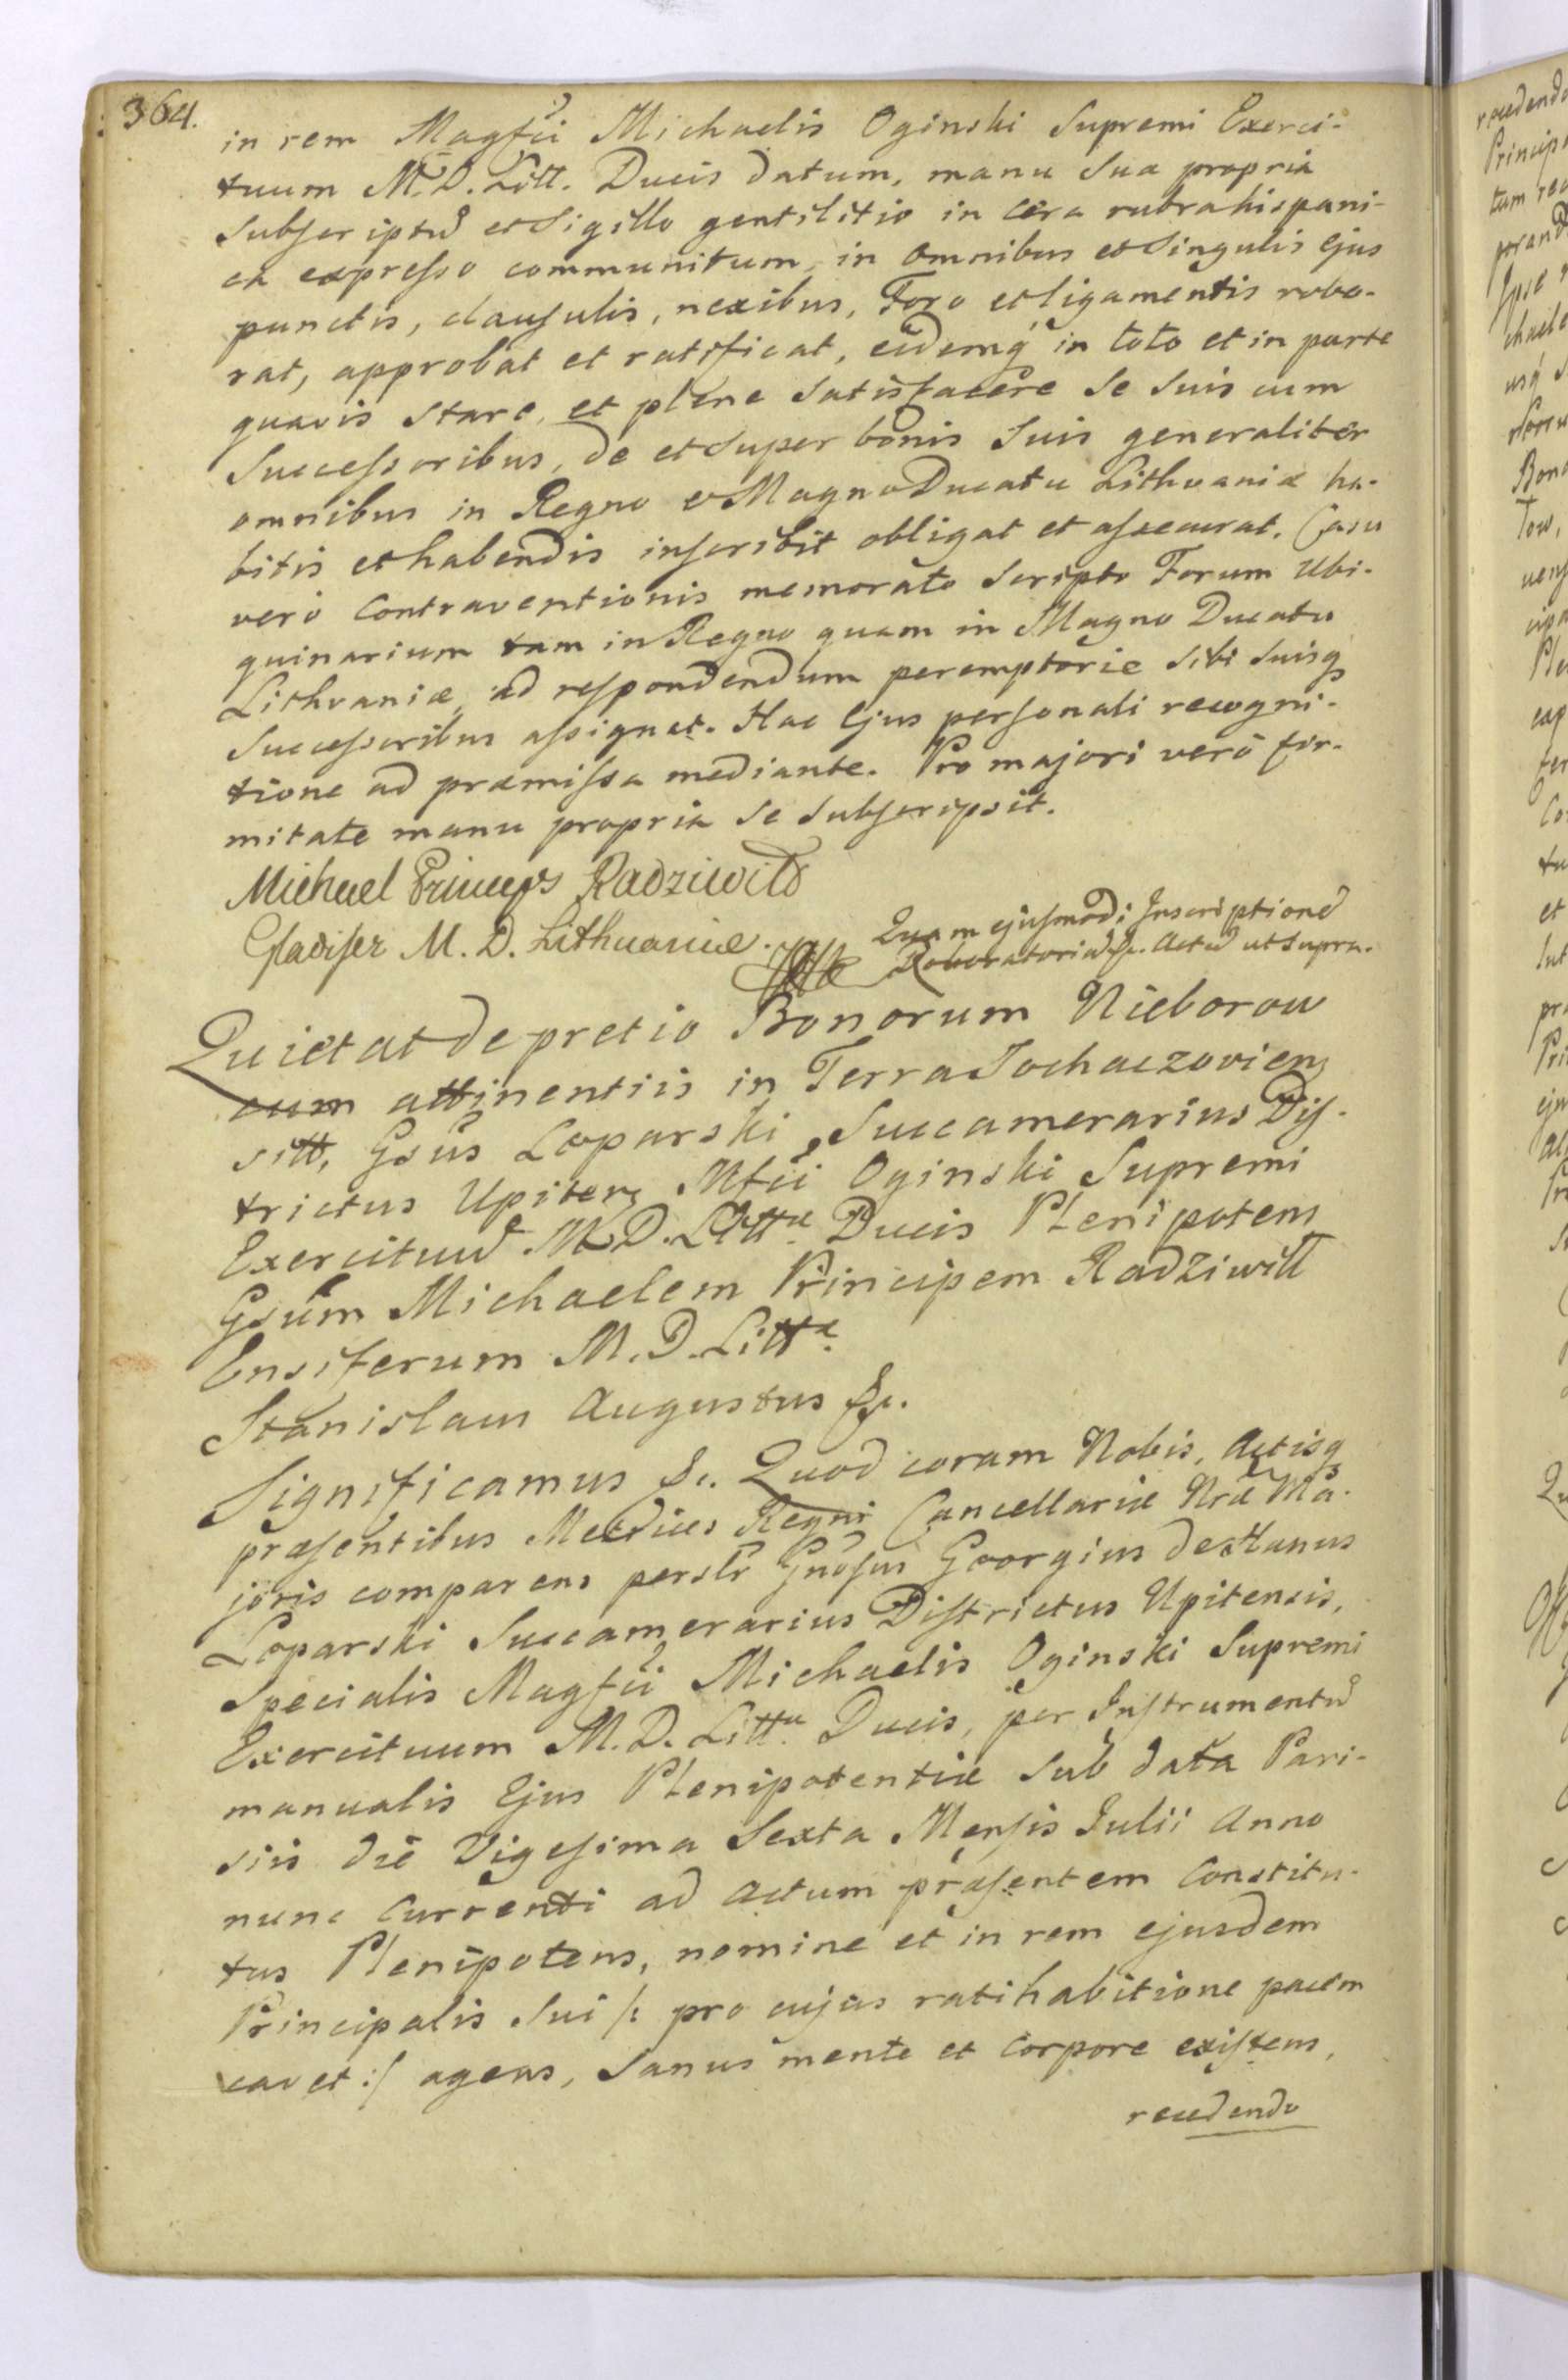 364.
in rem Magfci Michaelis Oginski Supremi Exerci-
tuum M. D. Litt. Ducis datum, manu sua propria
subscriptu et sigillo gentilitio in cera rubra hispani-
ca expresso communitum, in omnibus et singulis Ejus
punctis, clausulis, nexibus, Foro et ligamentis robo-
rat, approbat et ratificat, eidemq in toto et in parte
quavis stare, et plene satisfacere se suis cum
Successoribus, de et super bonis suis generaliter
omnibus in Regno & Magno Ducatu Lithvaniæ ha-
bitis et habendis inscribit obligat et assecurat. Casu
verò Contraventionis memorato scripto Forum Ubi-
quinarium tam in Regno quam in Magno Ducatu
Lithvaniæ, ad respondendum peremptorie sibi suisq
Successoribus assignat. Hac Ejus personali recogni-
tione ad præmissa mediante. Pro majori verò fir-
mitate manu propria se subscripsit.
Michael Princeps Radziwiłł
Gladifer M. D. Lithuaniæ.
Quam ejusmodi Inscriptione
Roboratoria &c. Actu ut supra.
Quietat de pretio Bonorum Nieborow
cum attinentiis in Terra Sochaczovien
sitt, Gsus Łoparski Succamerarius Dis-
trictus Upiten, Mfci Oginski Supremi
Exercituu M. D. Littæ Ducis Plenipotens
Gsum Michaelem Principem Radziwiłł
Ensiferum M. D. Littæ.
Stanislaus Augustus &c.
Significamus &c. Quod coram Nobis, Actisq
præsentibus Metrices Regni Cancellariæ Nræ Ma-
joris comparens perslr Gnosus Georgius de Hanus
Łoparski Succamerarius Districtus Upitensis,
Specialis Magfci Michaelis Oginski Supremi
Exercituum M. D. Littæ Ducis, per Instrumentu
manualis Ejus Plenipotentiæ sub data Pari-
siis die Vigesima Sexta Mensis Julii Anno
nunc Currenti ad actum præsentem Constitu-
tus Plenipotens, nomine et in rem ejusdem
Principalis sui /: pro cujus ratihabitione pacem
cavet :/ agens, sanus mente et Corpore existens,
recedendo